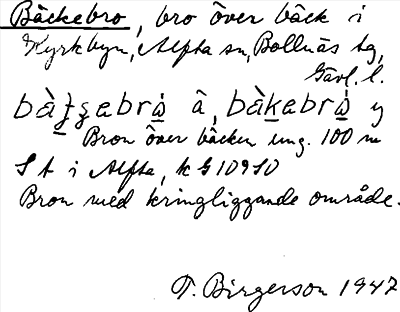 Bäckebro, bro över bäck i
Kyrkbyn, Alfta sn, Bollnäs tg,
Gävl. l.
â, y
Bron över bäcken ung. 100 m
i Alfta, k
Bron med kringliggande område.
T. Birgerson 1947